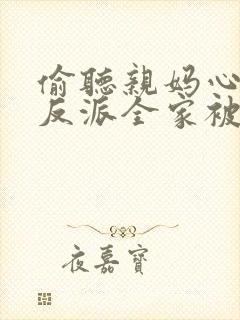 偷聽親媽心
反派全家被
夜嘉寶